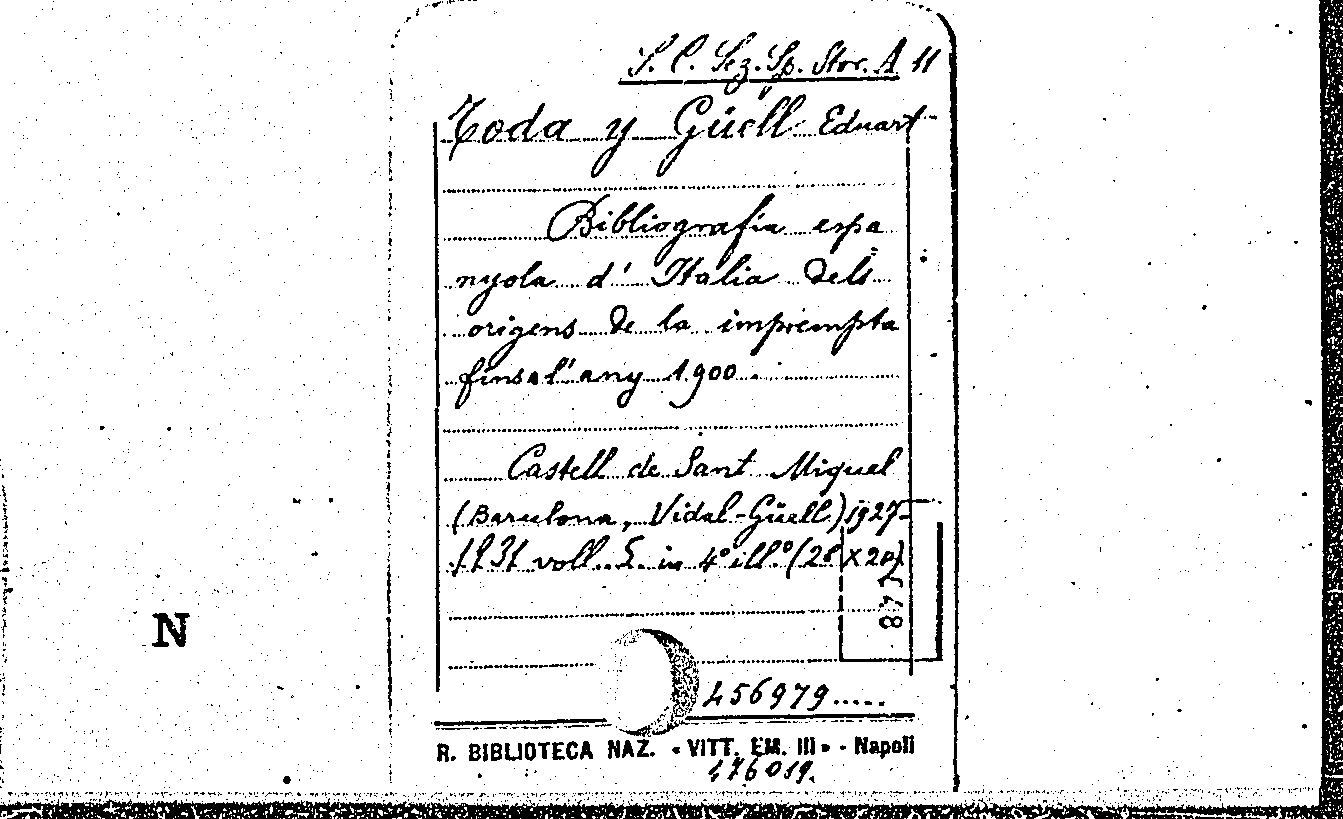 S. C. Sez. Sp. Stor. A 11
Toda y Güell Eduart
Bibliografia espa
nyola d' Italia Dels
origens de la imprempta
fins a l'any 1900.
Castell de Sant Miquel
(Barcelona, Vidal-Güell) 1927-
1931 voll. 5. in 4° ill.° (28 x 20)
N
456979.....
R. BIBLIOTECA NAZ. «VITT. EM. III» - Napoli
476019.